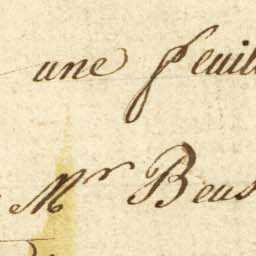 une feuill
Mr Beus